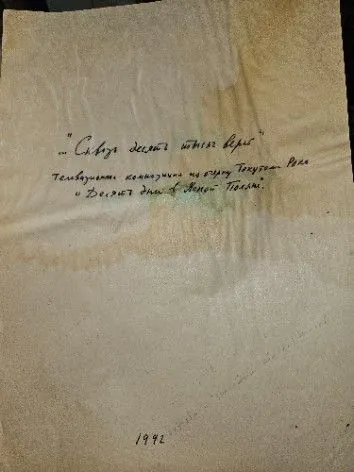 ..."Сквозь десять тысяч верст"
телевизионная композиция по очерку Токутоми Рока
"Десять дней в Ясной Поляне".
1992